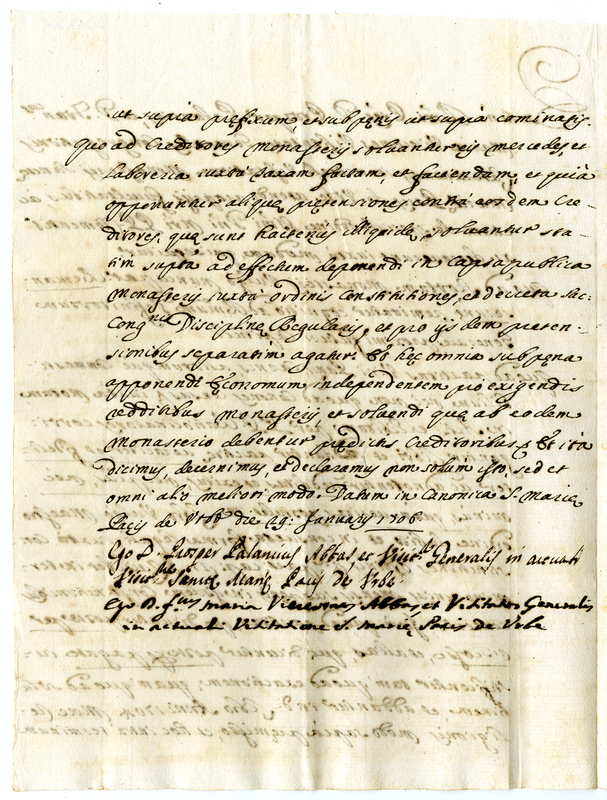 ut supra prefixum, et sub pęnis ut supra cominatis.
quo ad Creditores monasterij soluantur eis mercedes, et
laboreria iuxta taxam factam, et faciendam, et quia
opponuntur aliquę pretensiones contra eosdem Cre-
ditores, quę sunt hactenus illiquidę, soluantur sta-
tim supta ad effectum deponendi in capsa publica
Monasterij iuxta ordinis Constitutiones, et decreta Sac:
Congnis Disciplinę Regularis, et pro ijsdem preten-
sionibus separatim agatur. Et hęc omnia sub pęna
apponendi Ęconomum independentem pro exigendis
redditibus Monasterij, et soluendi quę ab eodem
Monasterio debentur prędictis Creditoribus & Et ita
dicimus, decernimus, et declaramus non solum isto, sed et
omni alio meliori modo. Datum in Canonica S. Marię
Pacis de Vrbe die 29: January 1706
Ego D. Prosper Abbas, et Visitr Generalis in actuali
Visitne Sanctę Marię Pacis de Vrbe
Ego D. maria Abbas et Visitator Generalis
in actuali Visitatione S. marię Pacis de Vrbe